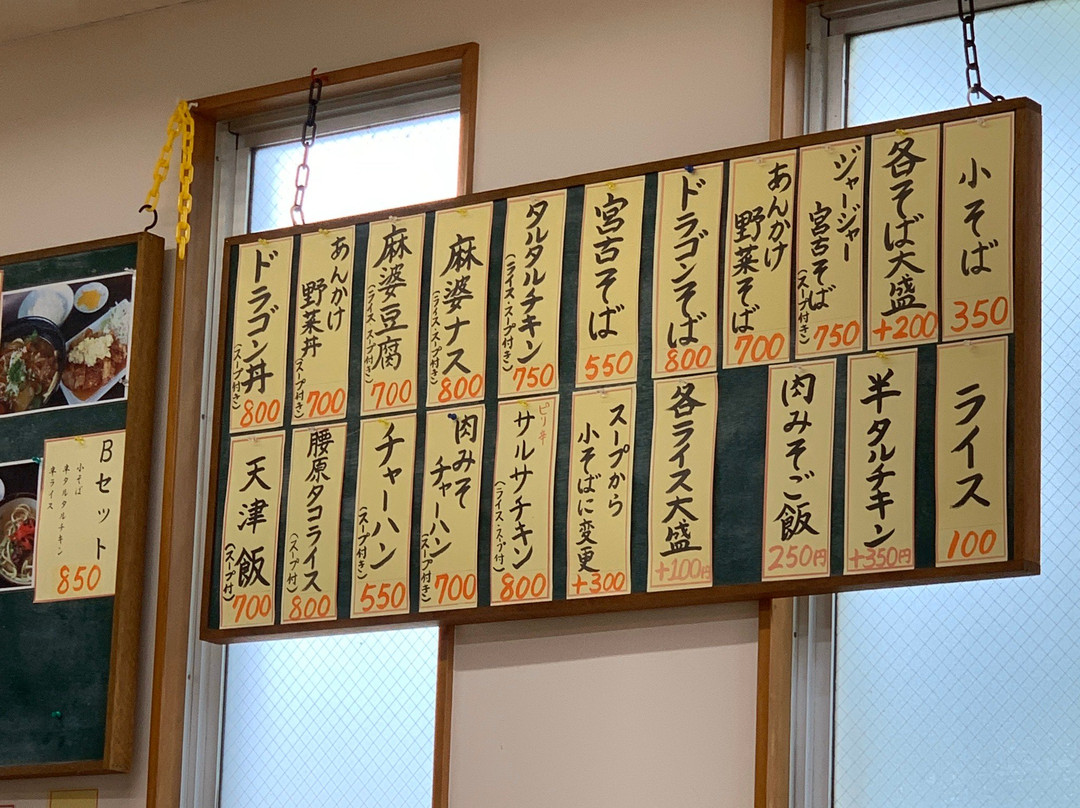 小そば
350
各そば大盛
+200
ジャージャー
宮古そば
(スープ付き)
750
あんかけ
野菜そば
700
ドラゴンそば
800
宮古そば
550
タルタルチキン
(ライス・スープ付き)
750
麻婆ナス
(ライス・スープ付き)
800
麻婆豆腐
(ライス・スープ付き)
700
あんかけ
野菜丼
(スープ付き)
700
ドラゴン丼
(スープ付き)
800
ライス
100
半タルチキン
+350円
肉みそご飯
250円
各ライス大盛
+100円
スープから
小そばに変更
+300
ピリ辛
サルサチキン
(ライス・スープ付)
800
肉みそ
チャーハン
(スープ付)
700
チャーハン
(スープ付)
550
腰原タコライス
(スープ付)
800
天津飯
(スープ付)
700
Bセット
小そば
半タルタルチキン
半ライス
850